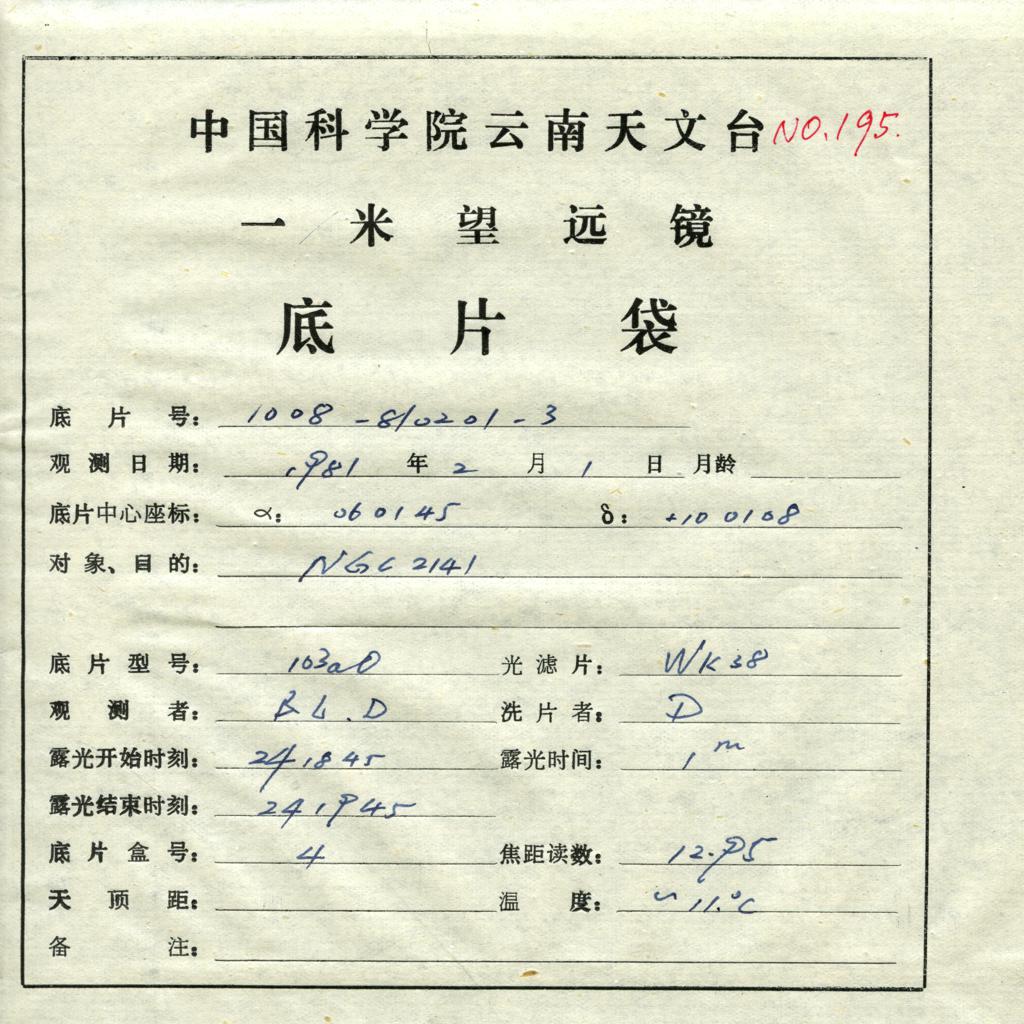 中国科学院云南天文台 NO.195.
一米望远镜
底片袋
底片号: 1008-810201-3
观测日期: 1981 年 2 月 1 日 月龄
底片中心座标: α: 060145 δ: +100108
对象、目的: NGC 2141
底片型号: 103aO 光滤片: WK38
观测者: B L.D 洗片者: D
露光开始时刻: 241845 露光时间: 1m
露光结束时刻: 241945
底片盒号: 4 焦距读数: 12.95
天顶距: 温度: ~11.°C
备注: